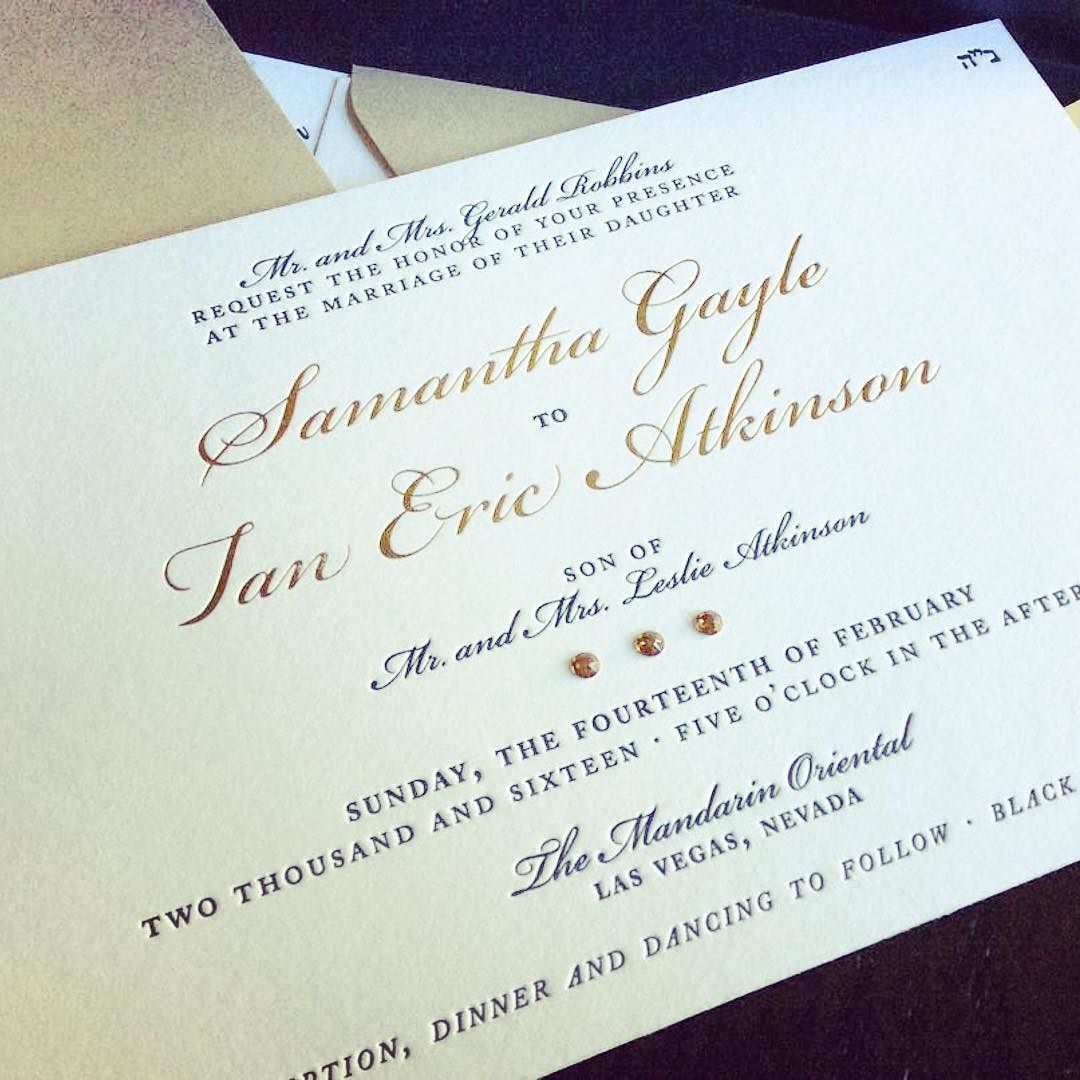 ב"ה
Mr. and Mrs. Gerald Robbins
REQUEST THE HONOR OF YOUR PRESENCE
AT THE MARRIAGE OF THEIR DAUGHTER
Samantha Gayle
TO
Ian Eric Atkinson
SON OF
Mr. and Mrs. Leslie Atkinson
SUNDAY, THE FOURTEENTH OF FEBRUARY
TWO THOUSAND AND SIXTEEN · FIVE O'CLOCK IN THE AFTER
The Mandarin Oriental
LAS VEGAS, NEVADA
PTION, DINNER AND DANCING TO FOLLOW · BLACK